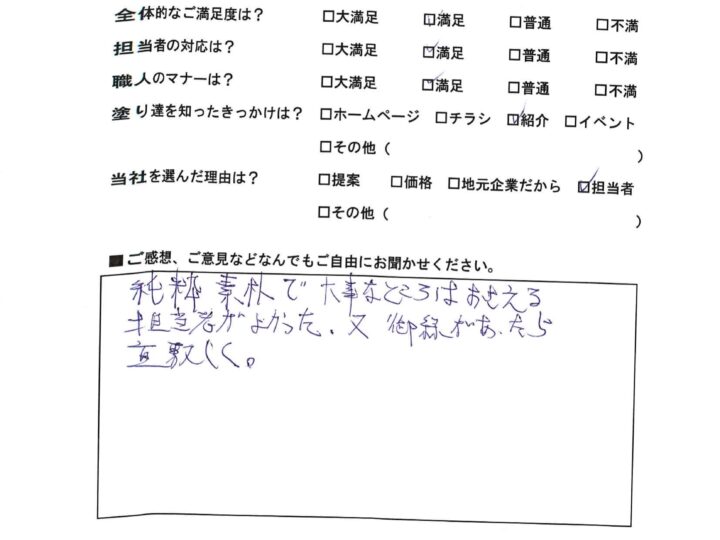 全体的なご満足度は? □大満足 ☑満足 □普通 □不満
担当者の対応は? □大満足 ☑満足 □普通 □不満
職人のマナーは? □大満足 ☑満足 □普通 □不満
塗り達を知ったきっかけは? □ホームページ □チラシ ☑紹介 □イベント
□その他( )
当社を選んだ理由は? □提案 □価格 □地元企業だから ☑担当者
□その他( )
■ご感想、ご意見などなんでもご自由にお聞かせください。
純粋素朴で大事なところはおさえる
担当者がよかった。又御縁があったら
宜敷しく。